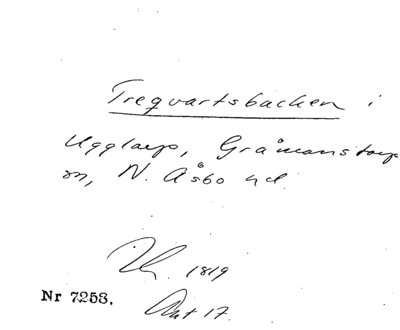 Treqvartsbacken i
Ugglarp, Gråmanstorp
sn, N. Åsbo hd.
1819
Nr 7258.
Akt 17